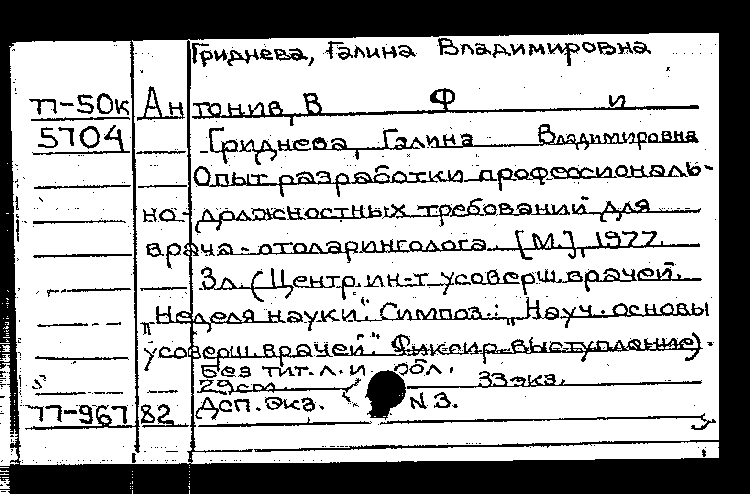 Гриднева, Галина Владимировна
77-50к Антонив, В Ф и
5704 Гриднева, Галина Владимировна
Опыт разработки профессиональ-
но-должностных требований для
врача-отоларинголога. [М.], 1977.
3л. (Центр. ин-т усоверш. врачей.
„Неделя науки". Симпоз.: „Науч. основы
усоверш. врачей". Фиксир. выступление).
Без тит. л. и обл.
29см 33 экз.
77-967 82 Дсп. Экз. N 3.